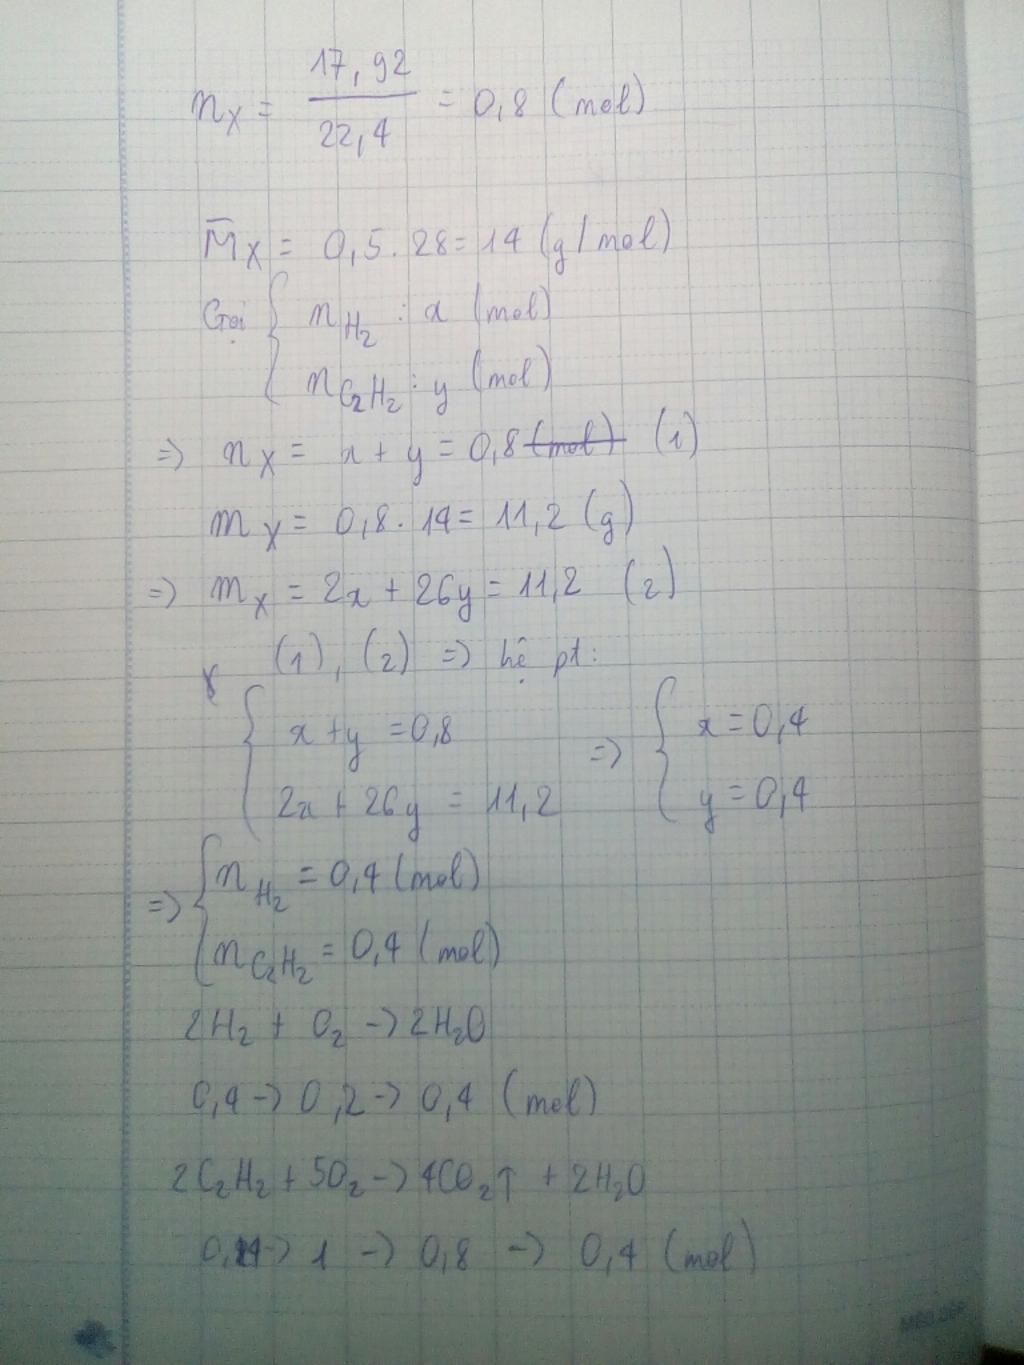 n_X = 17,92 / 22,4 = 0,8 (mol)
M̅_X = 0,5 . 28 = 14 (g/mol)
Gọi { n_H₂ : x (mol)
n_C₂H₂ : y (mol)
=> n_X = x + y = 0,8 (mol) (1)
m_X = 0,8 . 14 = 11,2 (g)
=> m_X = 2x + 26y = 11,2 (2)
(1), (2) => hệ pt:
{ x + y = 0,8 => { x = 0,4
2x + 26y = 11,2 y = 0,4
=> { n_H₂ = 0,4 (mol)
n_C₂H₂ = 0,4 (mol)
2H₂ + O₂ -> 2H₂O
0,4 -> 0,2 -> 0,4 (mol)
2C₂H₂ + 5O₂ -> 4CO₂↑ + 2H₂O
0,4 -> 1 -> 0,8 -> 0,4 (mol)